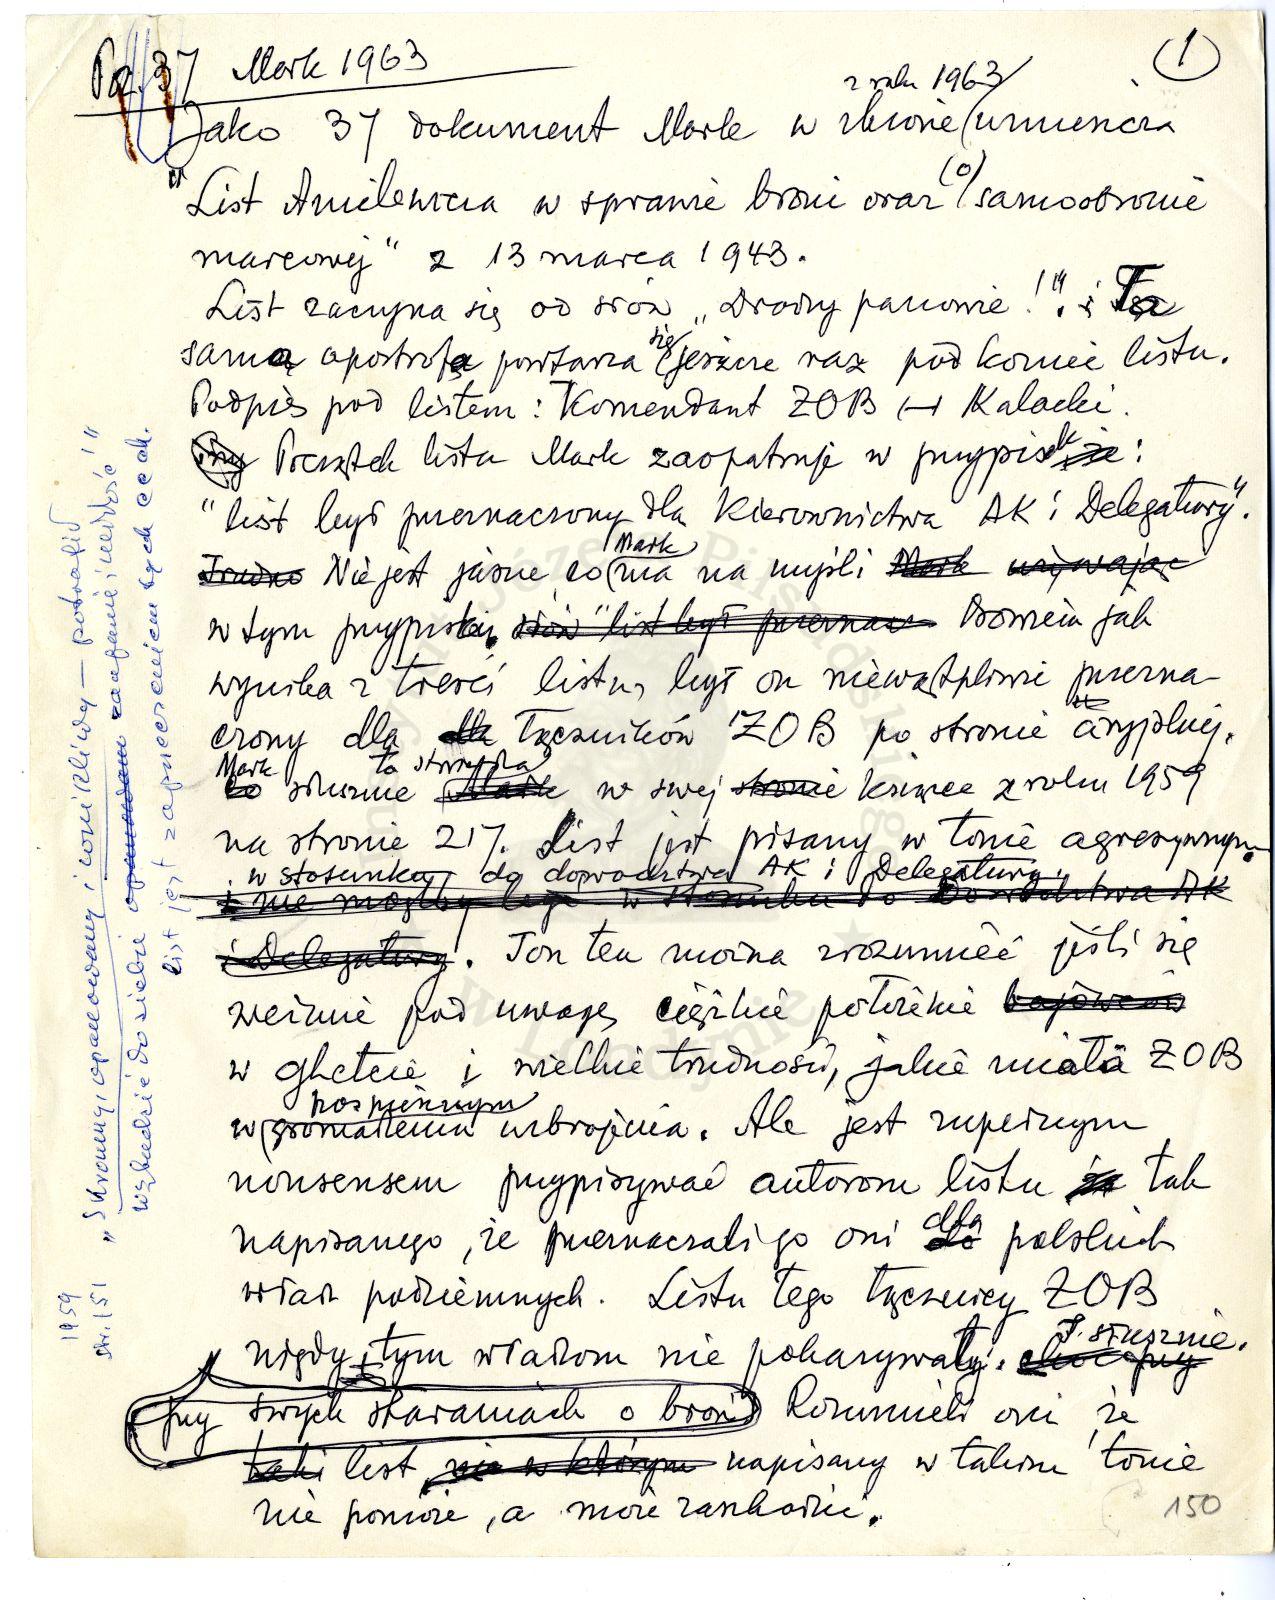 Poz. 37 Mark 1963
1
z roku 1963
Jako 37 dokument Mark w zbiorze umieszcza
"List Anielewicza w sprawie broni oraz (o) samoobronie
marcowej" z 13 marca 1943.
List zaczyna się od słów "Drodzy panowie!". i Ta
sama apostrofa powtarza się jeszcze raz pod koniec listu.
Podpis pod listem: Komendant ZOB — Malachi.
Początek listu Mark zaopatruje w przypisek:
"list był przeznaczony dla Kierownictwa AK i Delegatury".
Trudno Nie jest jasne co Mark ma na myśli Mark używając
w tym przypisku. słów "list był przeznacz Bowiem jak
wynika z treści listu, był on niewątpliwie przezna-
czony dla łączników ŻOB po stronie aryjskiej.
Mark słusznie to stwierdza w swej książce z roku 1959
na stronie 217. List jest pisany w tonie agresywnym
w stosunku do dowództwa AK i Delegatury.
i nie mógłby być w stosunku do Dowództwa AK
i Delegatury. Ton ten można zrozumieć jeśli się
weźmie pod uwagę ciężkie położenie
w ghetcie i wielkie trudności, jakie miała ZOB
w pospiesznym gromadzeniu uzbrojenia. Ale jest zupełnym
nonsensem przypisywać autorom listu tak
napisanego, że przeznaczali go oni dla polskich
władz podziemnych. Listu tego łącznicy ZOB
nigdy tym władzom nie pokazywały. I słusznie.
przy swych staraniach o broń Rozumieli oni, że
taki list, nie w którym napisany w takim tonie
nie pomoże, a może zaszkodzić.
150
1959
str. 151 "Skromny, opanowany i wnikliwy — potrafił
wzbudzić do siebie zaufanie i miłość"
list jest zaprzeczeniem tych cech.